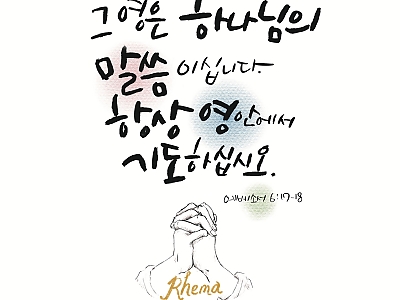 그 영은 하나님의
말씀 이십니다.
항상 영안에서
기도하십시오.
에베소서 6:17-18
Rhema